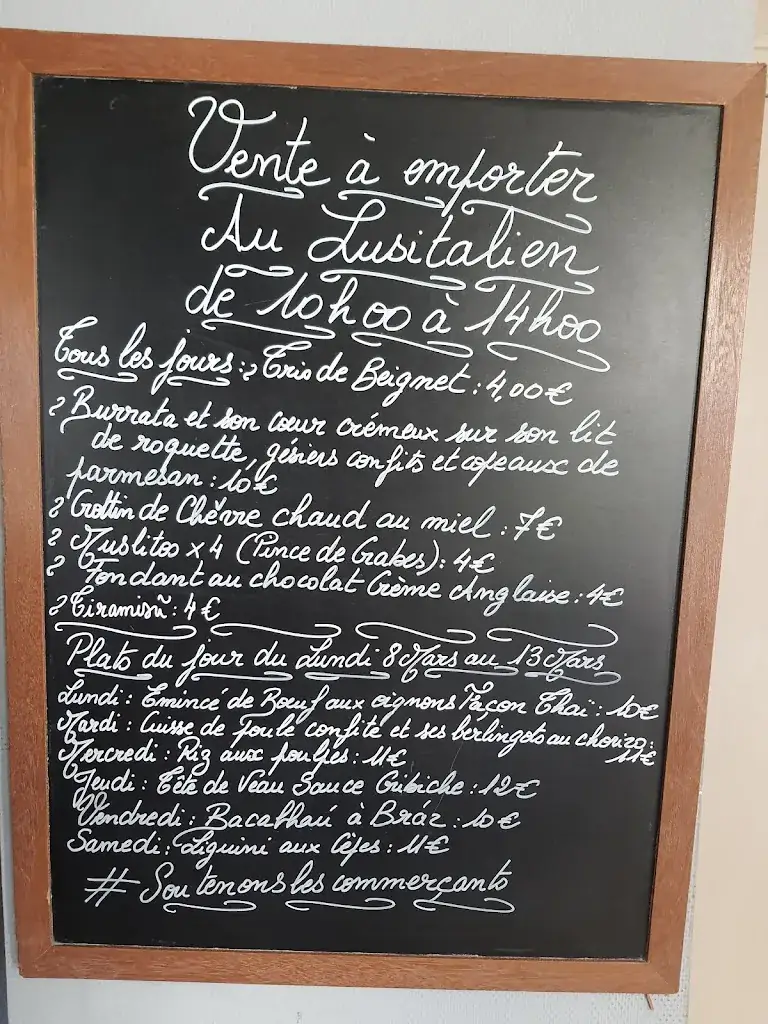 Vente à emporter
Au Lusitalien
de 10h00 à 14h00
Tous les jours : Trio de Beignet : 4,00€
Burrata et son cœur crémeux sur son lit
de roquette, gésiers confits et copeaux de
parmesan : 10€
Crottin de Chèvre chaud au miel : 7€
Muslitos x 4 (Pince de Crabes) : 4€
Fondant au chocolat Crème Anglaise : 4€
Tiramisu : 4€
Plats du jour du Lundi 8 Mars au 13 Mars
Lundi : Emincé de Bœuf aux oignons Façon Thaï : 10€
Mardi : Cuisse de poule confite et ses berlingots au chorizo :
11€
Mercredi : Riz aux poulpes : 11€
Jeudi : Tête de Veau Sauce Gribiche : 12€
Vendredi : Bacalhau à Bráz : 10€
Samedi : Liguini aux Cèpes : 11€
# Soutenons les commerçants